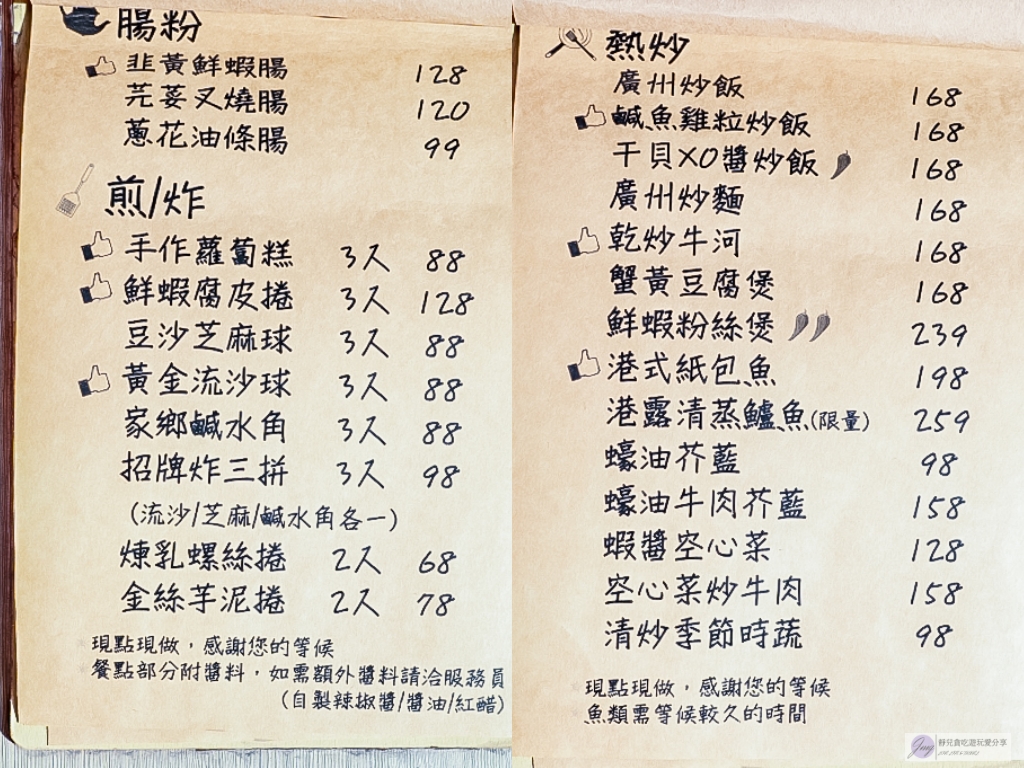 腸粉
韭黃鮮蝦腸 128
芫荽叉燒腸 120
蔥花油條腸 99
煎/炸
手作蘿蔔糕 3入 88
鮮蝦腐皮捲 3入 128
豆沙芝麻球 3入 88
黃金流沙球 3入 88
家鄉鹹水角 3入 88
招牌炸三拼 3入 98
(流沙/芝麻/鹹水角各一)
煉乳螺絲捲 2入 68
金絲芋泥捲 2入 78
現點現做，感謝您的等候
餐點部分附醬料，如需額外醬料請洽服務員
(自製辣椒醬/醬油/紅醋)
熱炒
廣州炒飯 168
鹹魚雞粒炒飯 168
干貝XO醬炒飯 168
廣州炒麵 168
乾炒牛河 168
蟹黃豆腐煲 168
鮮蝦粉絲煲 239
港式紙包魚 198
港露清蒸鱸魚(限量) 259
蠔油芥藍 98
蠔油牛肉芥藍 158
蝦醬空心菜 128
空心菜炒牛肉 158
清炒季節時蔬 98
現點現做，感謝您的等候
魚類需等候較久的時間
靜兒貪吃遊玩愛分享